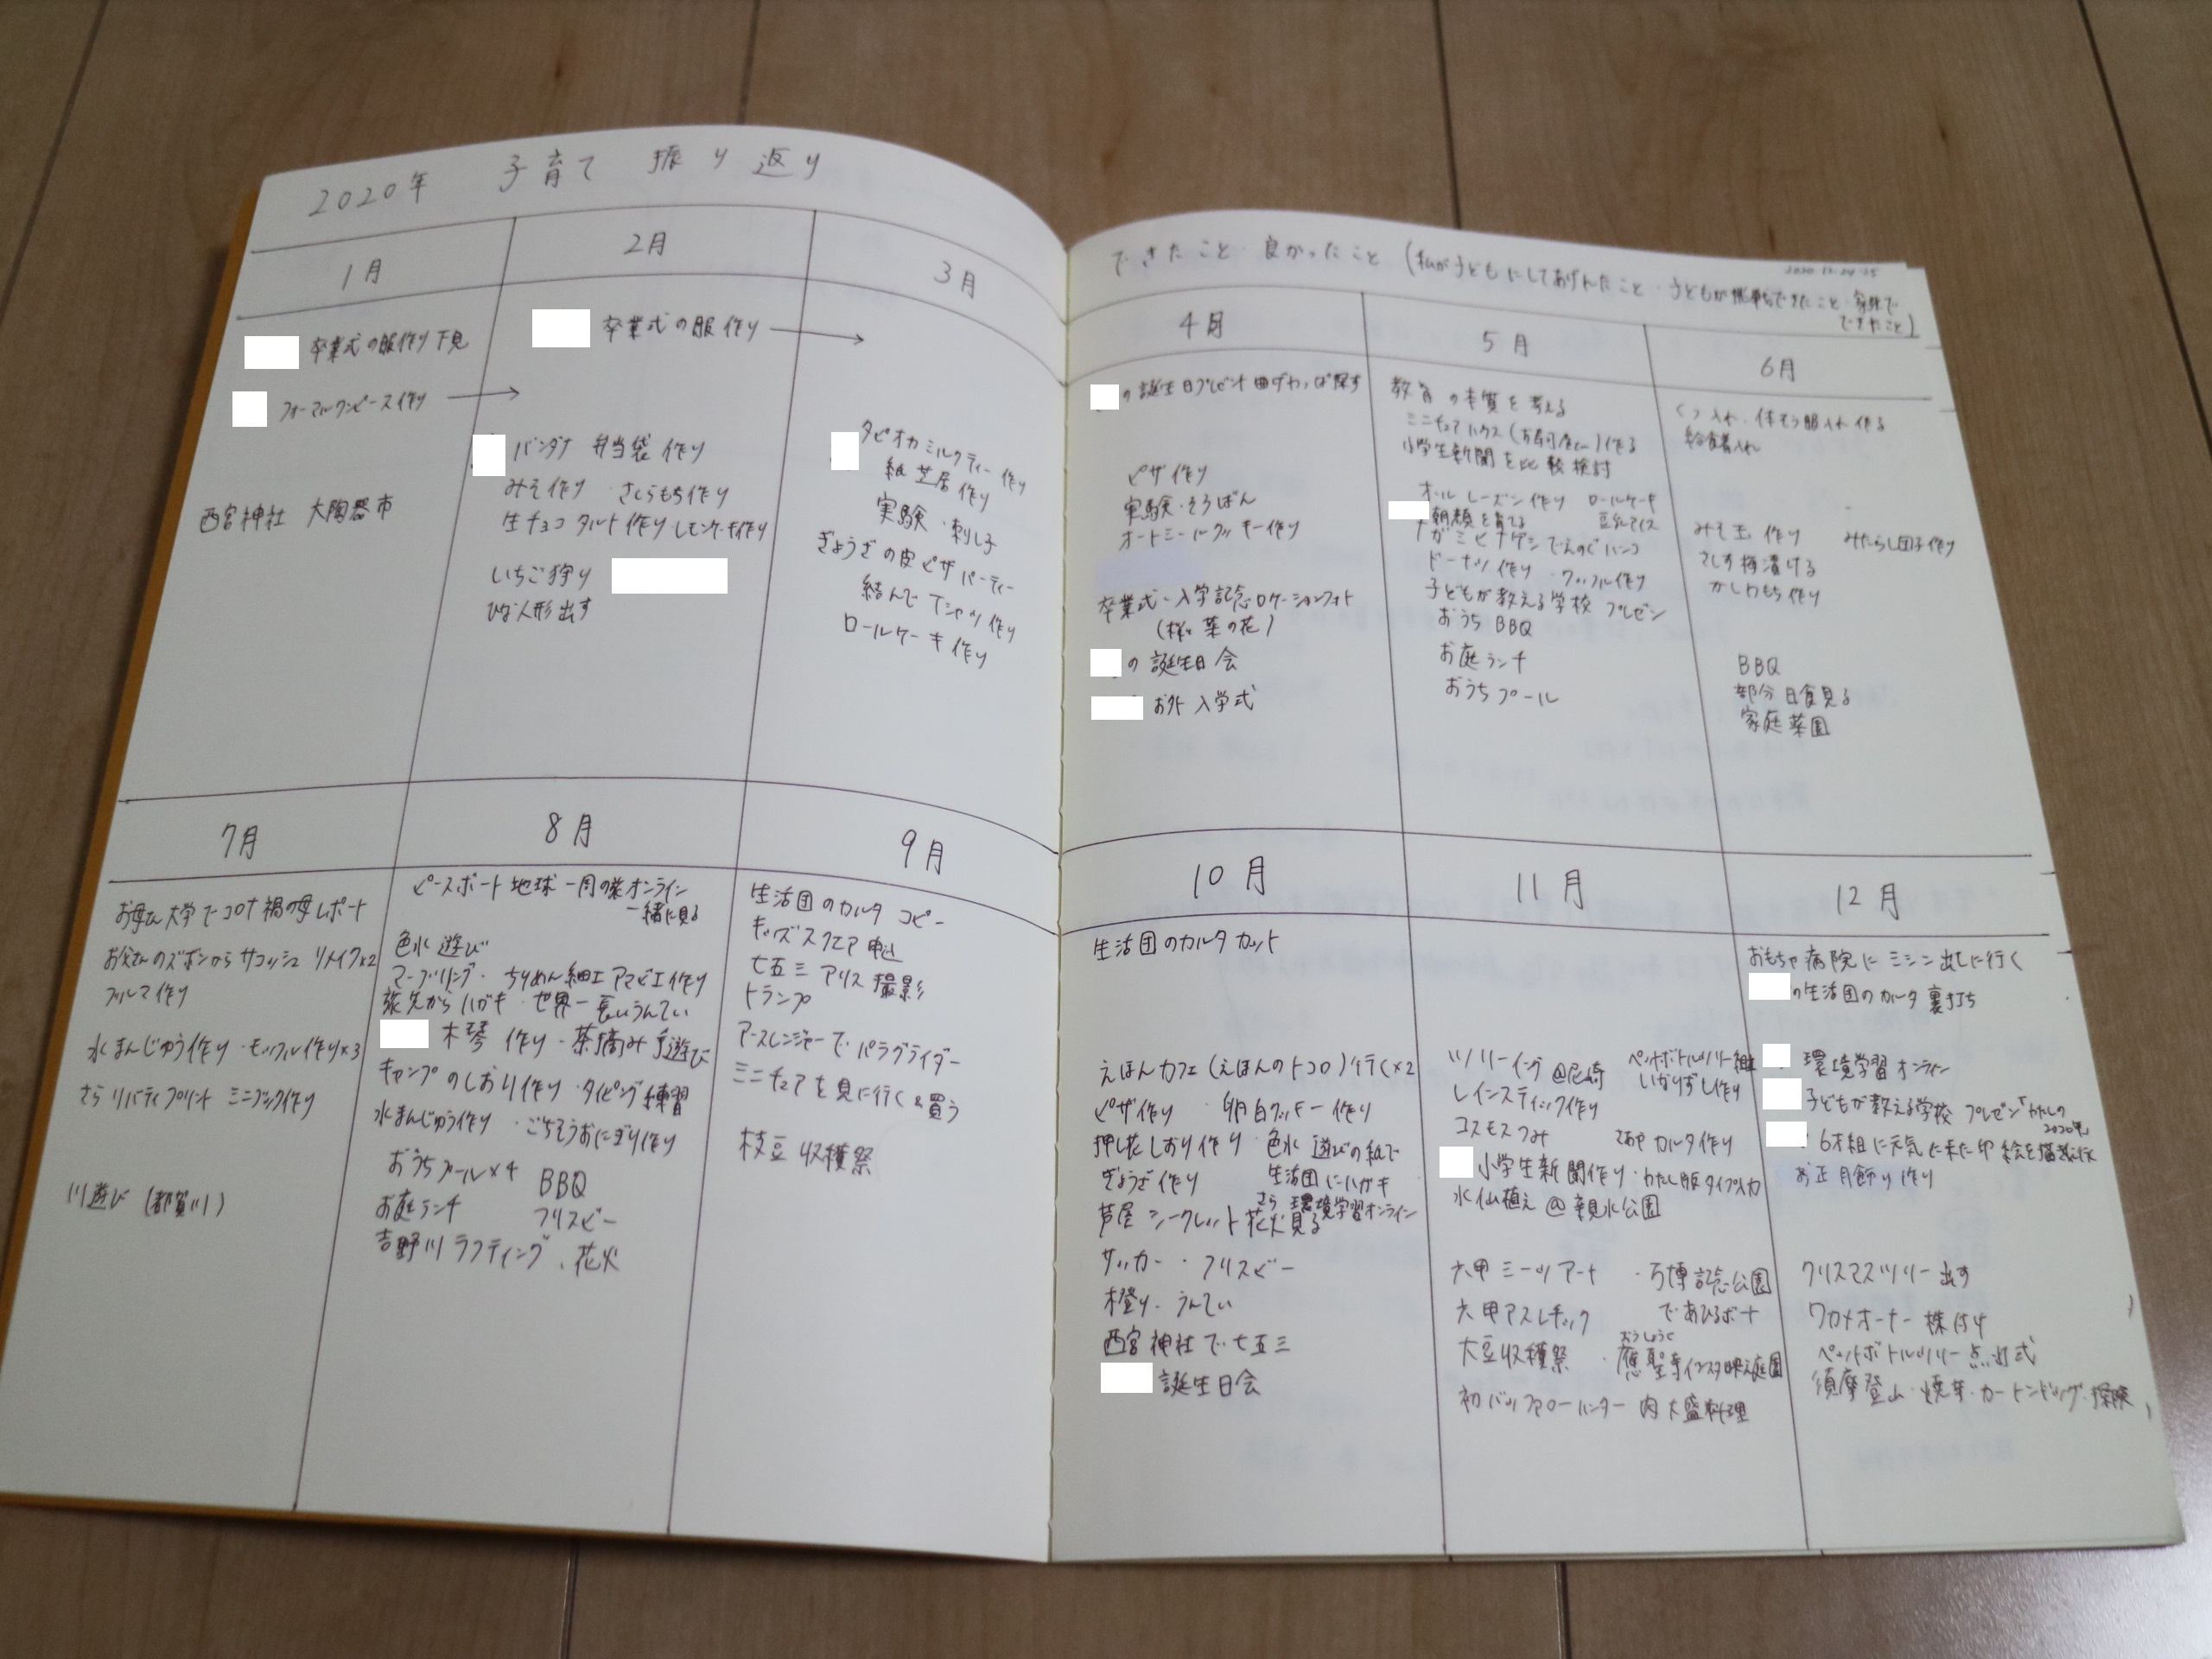 2020年 子育て 振り返り
1月
卒業式の服作り下見
フォーマルワンピース作り →
西宮神社 大陶器市
2月
卒業式の服作り →
バンダナ 弁当袋 作り
みそ作り ・さくらもち作り
生チョコタルト作り レモンケーキ作り
いちご狩り
ひな人形出す
3月
タピオカミルクティー作り
紙芝居作り
実験・刺し子
ぎょうざの皮ピザパーティー
結んでTシャツ作り
ロールケーキ作り
できたこと・良かったこと (私が子どもにしてあげれたこと・子どもが挑戦できたこと・家族で
できたこと)
4月
の誕生日プレゼント曲げわっぱ探す
ピザ作り
実験・そろばん
オートミールクッキー作り
卒業式・入学記念ロケーションフォト
(桜と菜の花)
の誕生日会
お外入学式
5月
教育の本質を考える
ミニチュアハウス(お寿司屋さん)作る
小学生新聞を比較検討
オールレーズン作り ロールケーキ
朝顔を育てる 豆乳アイス
ナガミヒナゲシでえのぐハンコ
ドーナツ作り ・ワッフル作り
子どもが教える学校 プレゼン
おうちBBQ
お庭ランチ
おうちプール
6月
くつ入れ・体そう服入れ作る
給食着入れ
みそ玉作り みたらし団子作り
さしす梅漬ける
かしわもち作り
BBQ
部分日食見る
家庭菜園
7月
お母さん大学でコロナ禍の母レポート
お父さんのズボンからサコッシュ リメイク×2
ブルマ作り
水まんじゅう作り・モッフル作り×3
さら リバティプリント ミニブック作り
川遊び(都賀川)
8月
ピースボート地球一周の旅オンライン
一緒に見る
色水遊び
マーブリング・ちりめん細工アマビエ作り
旅先からハガキ・世界一長いうんてい
木琴作り・茶摘み手遊び
キャンプのしおり作り・タイピング練習
水まんじゅう作り ・ごちそうおにぎり作り
おうちプール×4 BBQ
お庭ランチ フリスビー
吉野川ラフティング、花火
9月
生活団のカルタ コピー
キッズスクエア申込
七五三 アリス撮影
トランプ
アースレンジャーでパラグライダー
ミニチュアを見に行く&買う
枝豆収穫祭
10月
生活団のカルタ カット
えほんカフェ(えほんのトコロ)行く×2
ピザ作り ・卵白クッキー作り
押し花しおり作り・色水遊びの紙で
ぎょうざ作り 生活団にハガキ
さら 環境学習オンライン
芦屋シークレット花火見る
サッカー・フリスビー
木登り・うんてい
西宮神社で七五三
誕生日会
11月
ツリーイング@尼崎 ペットボトルツリー
レインスティック作り いかりずし作り
コスモスつみ さあや カルタ作り
小学生新聞作り・わたし版タイプ入力
水仙植え@親水公園
六甲ミーツアート ・万博記念公園
六甲アスレチック であひるボート
大豆収穫祭 ・應聖寺インスタ映え庭園
おうしょう
初バッファローハンター 肉大盛料理
12月
おもちゃ病院にミシン出しに行く
の生活団のカルタ裏打ち
環境学習オンライン
子どもが教える学校 プレゼン「わたしの
2020年」
6才組に元気に来た印 絵を描き
お正月飾り作り
クリスマスツリー出す
ワカメオーナー株付け
ペットボトルツリー点灯式
須摩登山・焼芋・カートンドッグ・探険